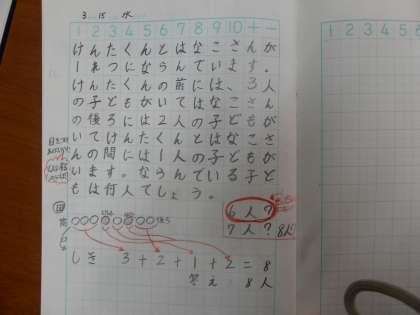 3 15 水
1 2 3 4 5 6 7 8 9 10 + −
けんたくんとはなこさんが
1れつにならんでいます。
けんたくんの前には、3人
の子どもがいてはなこさん
の後ろには2人の子どもが
いてけんたくんとはなこさ
んの間には1人の子どもが
います。ならんでいる子ど
もは何人でしょう。
6人?
7人? 8人
図
前
しき 3+2+1+2=8
答え 8人
1 2 3 4 5 6